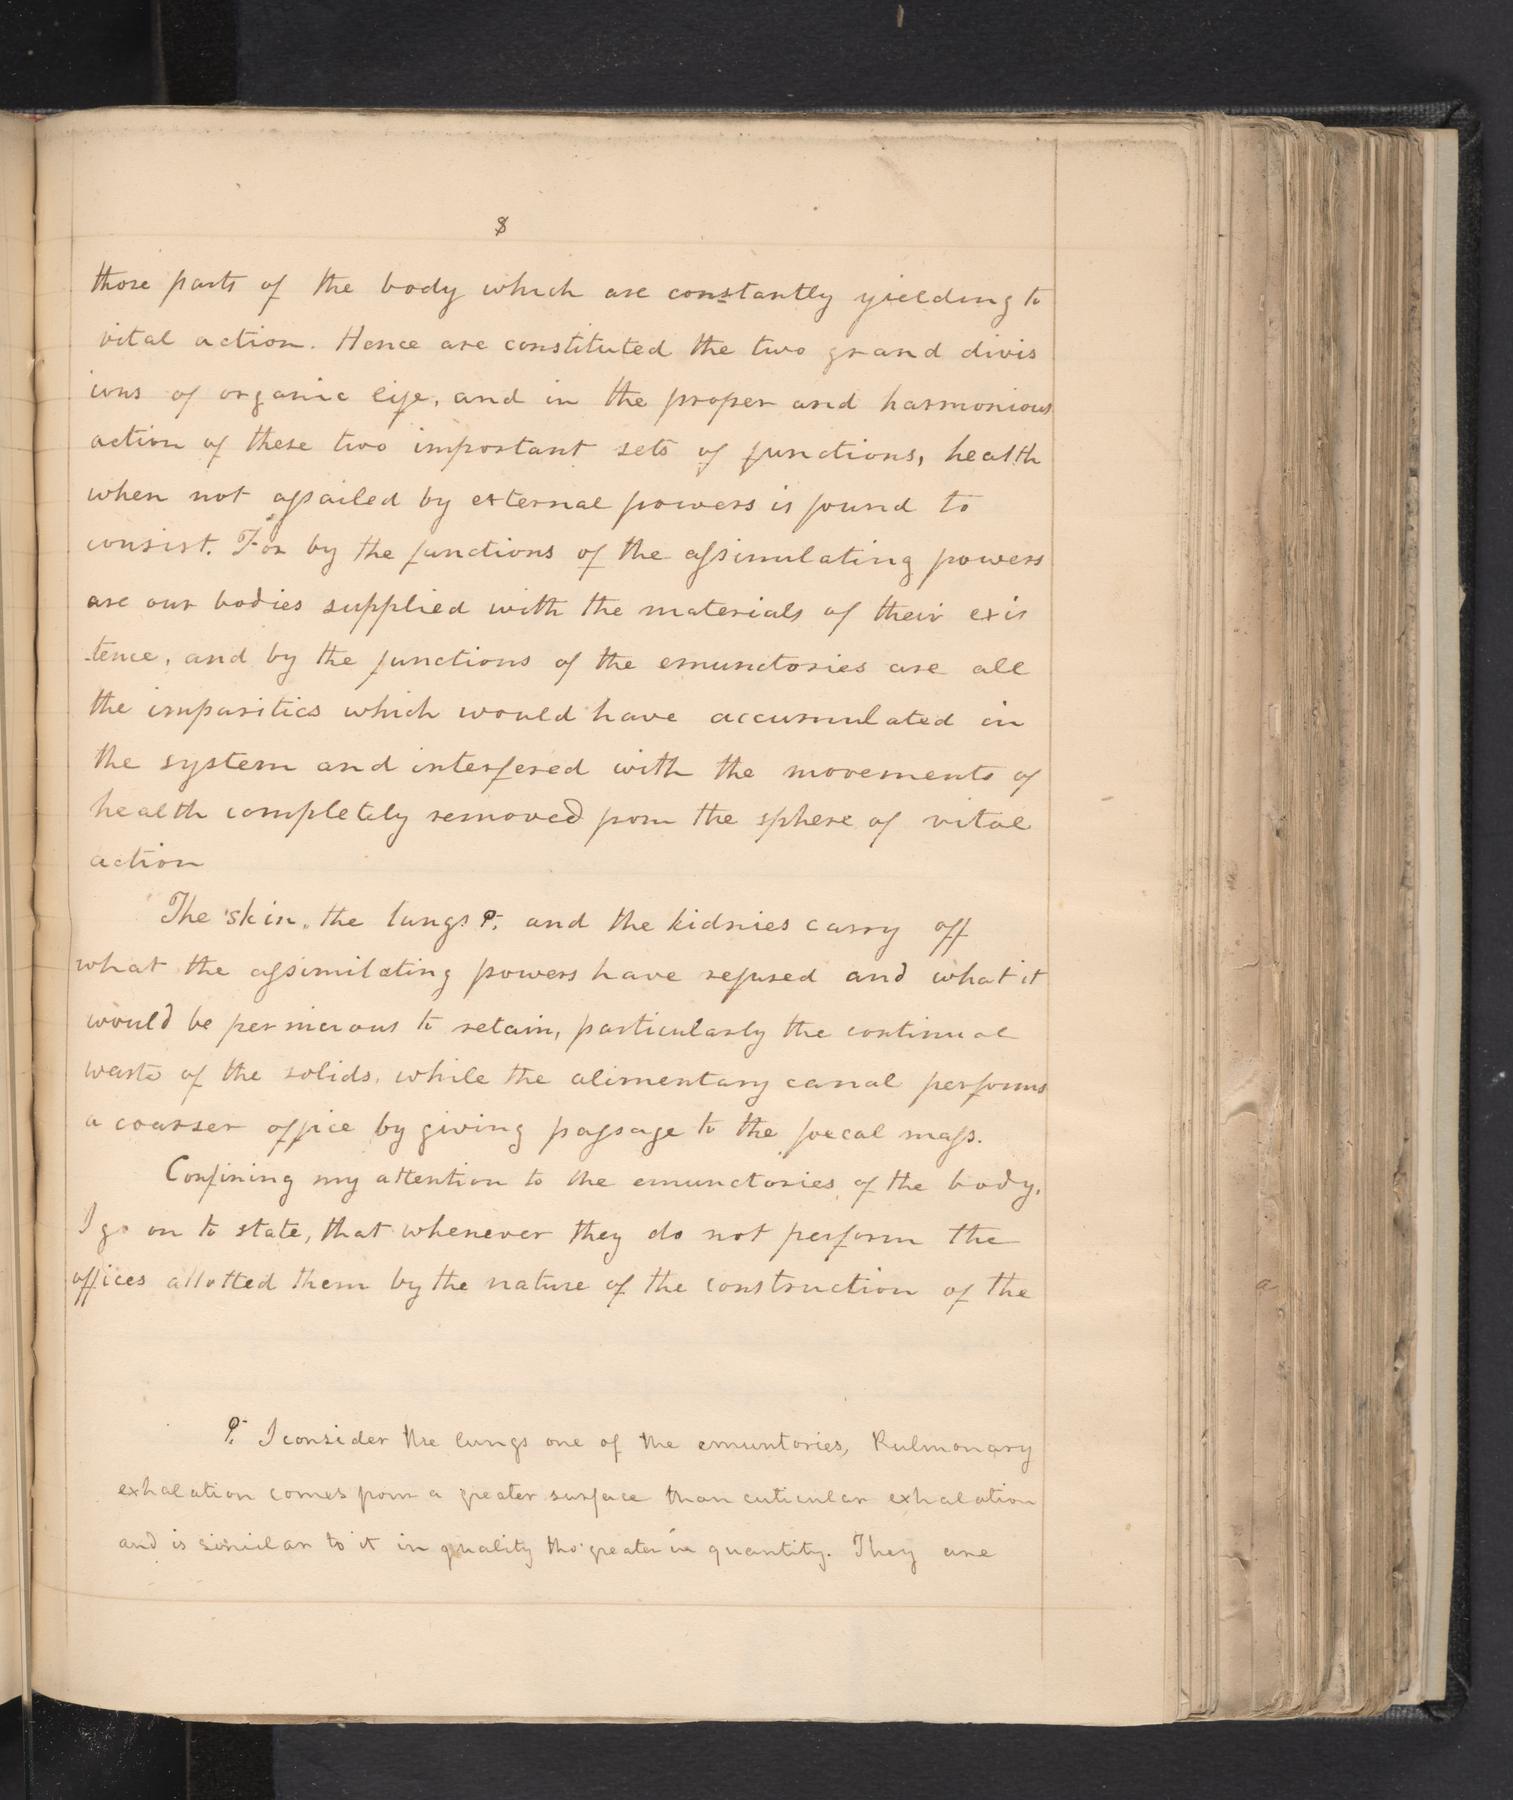 8
those parts of the body which are constantly yielding to
vital action. Hence are constituted the two grand divis
ions of organic life, and in the proper and harmonious
action of these two important sets of functions, health
when not assailed by external powers is found to
consist. For by the functions of the assimulating powers
are our bodies supplied with the materials of their exis
-tence, and by the functions of the emunctories are all
the impurities which would have accumulated in
the system and interfered with the movements of
health completely removed from the sphere of vital
action
The skin, the lungs P. and the kidnies carry off
what the assimilating powers have refused and what it
would be pernicious to retain, particularly the continual
waste of the solids, while the alimentary canal performs
a coarser office by giving passage to the foecal mass.
Confining my attention to the emunctories of the body,
I go on to state, that whenever they do not perform the
offices allotted them by the nature of the construction of the
P. I consider the lungs one of the emuntories, Pulmonary
exhalation comes from a greater surface than cuticular exhalation
and is similar to it in quality tho' greater in quantity. They are